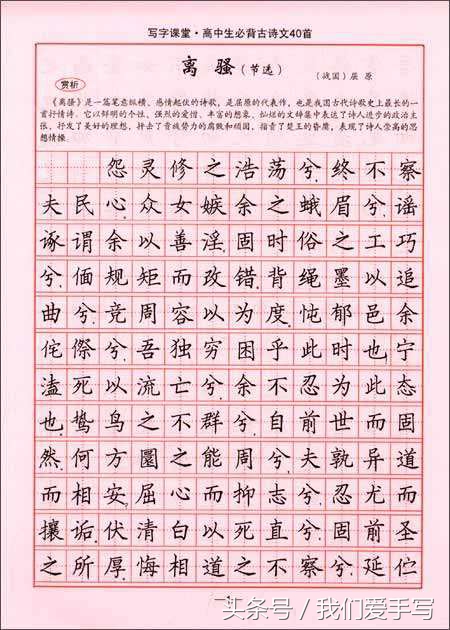 写字课堂·高中生必背古诗文40首
离骚（节选）
（战国）屈原
赏析
《离骚》是一篇笔意纵横、感情起伏的诗歌，是屈原的代表作，也是我国古代诗歌史上最长的一
首抒情诗。它以鲜明的个性、强烈的爱憎、丰富的想象、灿烂的文辞集中表达了诗人进步的政治主
张，抒发了美好的理想，抨击了贵族势力的腐败和顽固，指责了楚王的昏庸，表现了诗人崇高的思
想情操。
怨灵修之浩荡兮，终不察
夫民心。众女嫉余之蛾眉兮，谣
诼谓余以善淫。固时俗之工巧
兮，偭规矩而改错。背绳墨以追
曲兮，竞周容以为度。忳郁邑余
侘傺兮，吾独穷困乎此时也。宁
溘死以流亡兮，余不忍为此态
也。鸷鸟之不群兮，自前世而固
然。何方圜之能周兮，夫孰异道
而相安。屈心而抑志兮，忍尤而
攘诟。伏清白以死直兮，固前圣
之所厚。悔相道之不察兮，延伫
头条号／我们爱手写